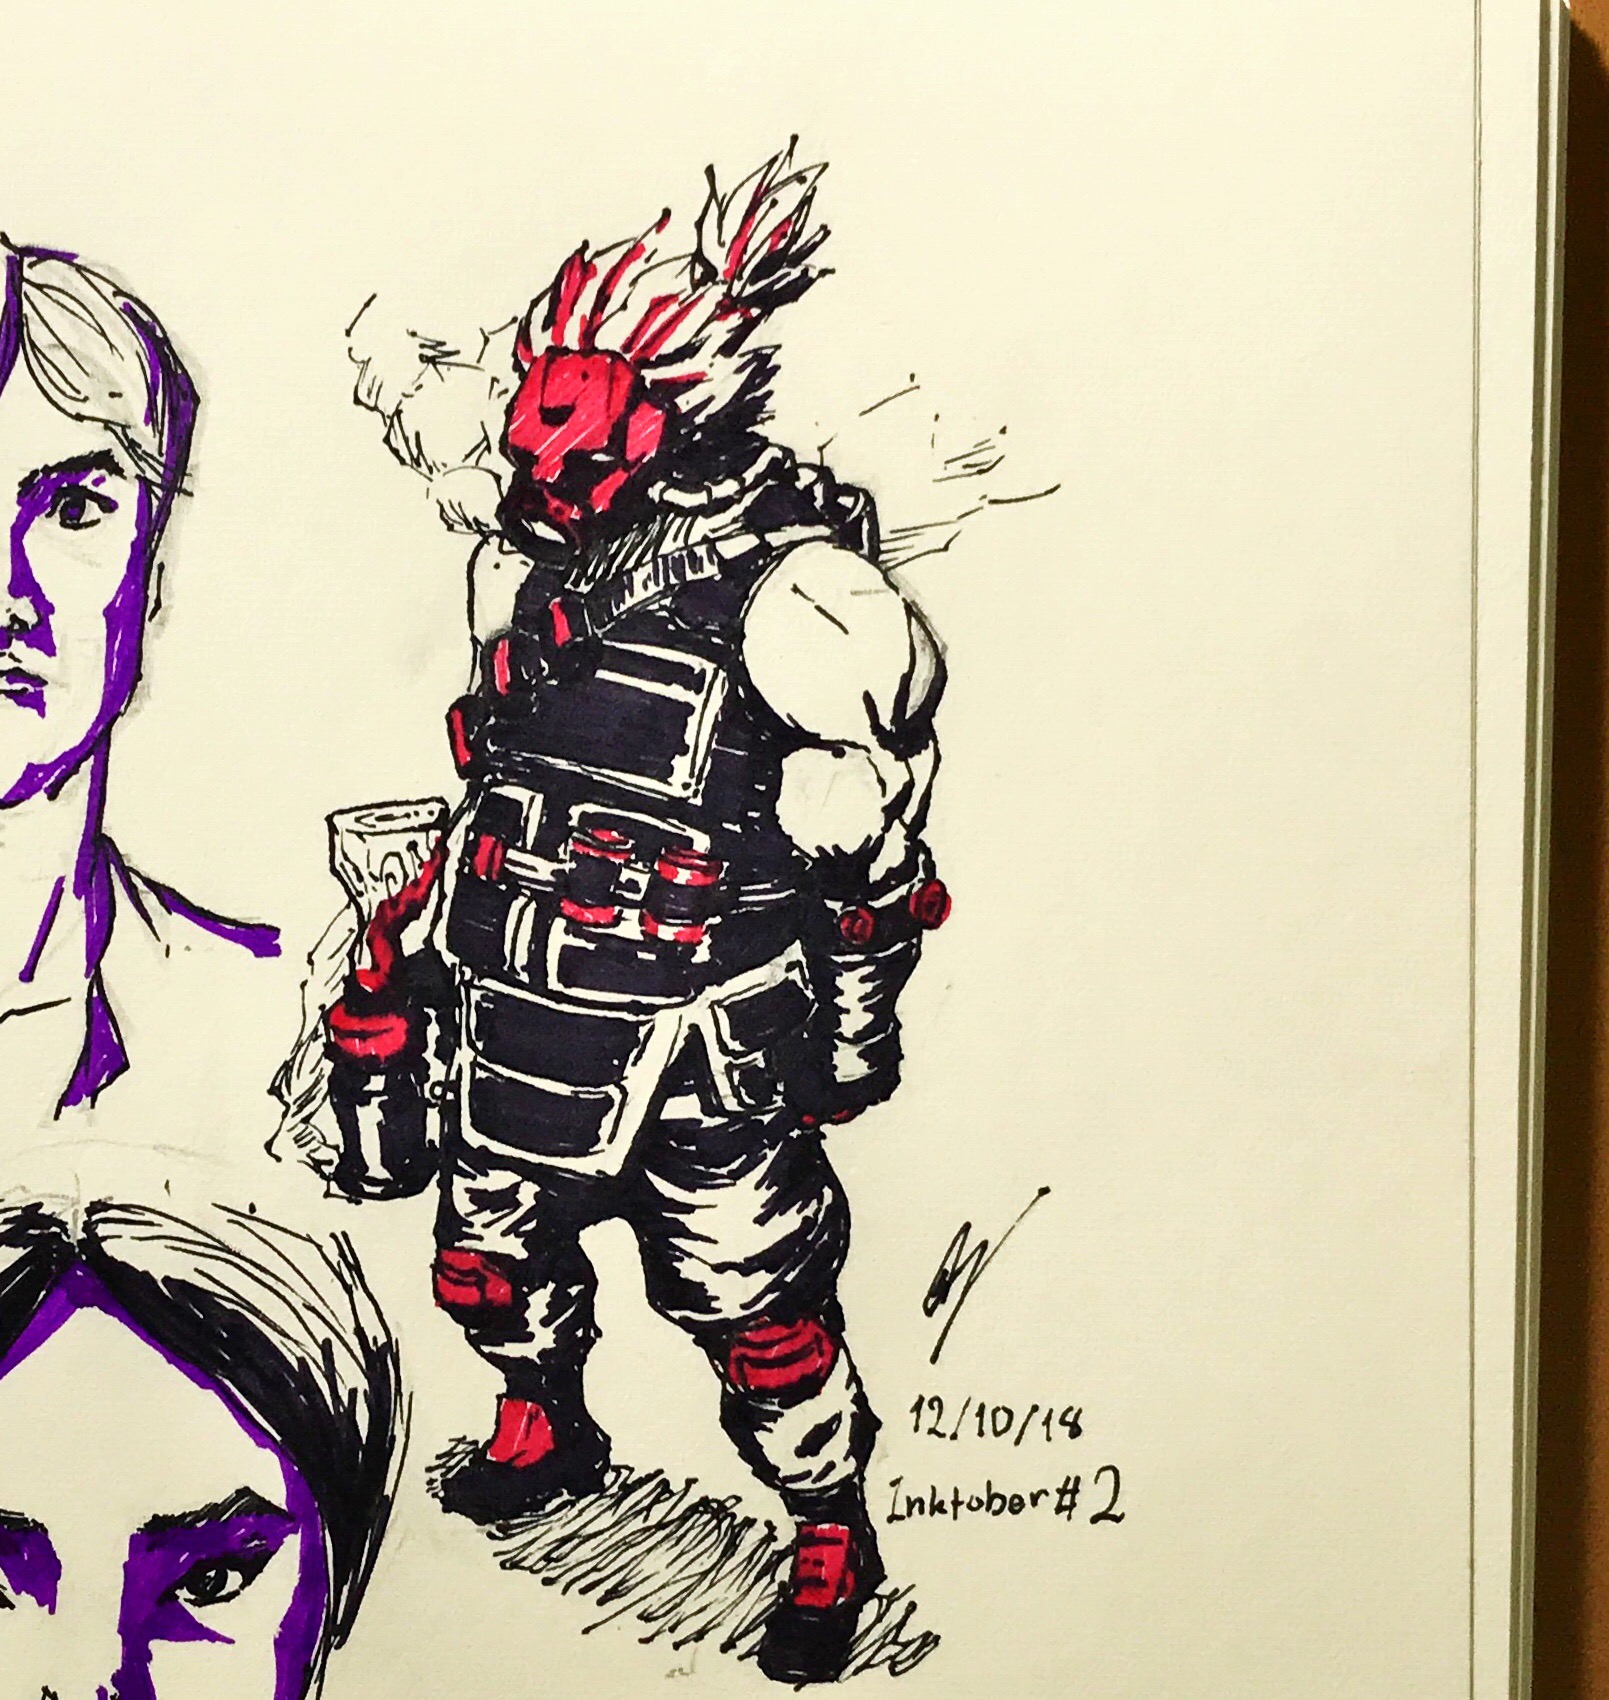 12/10/18
Inktober #2